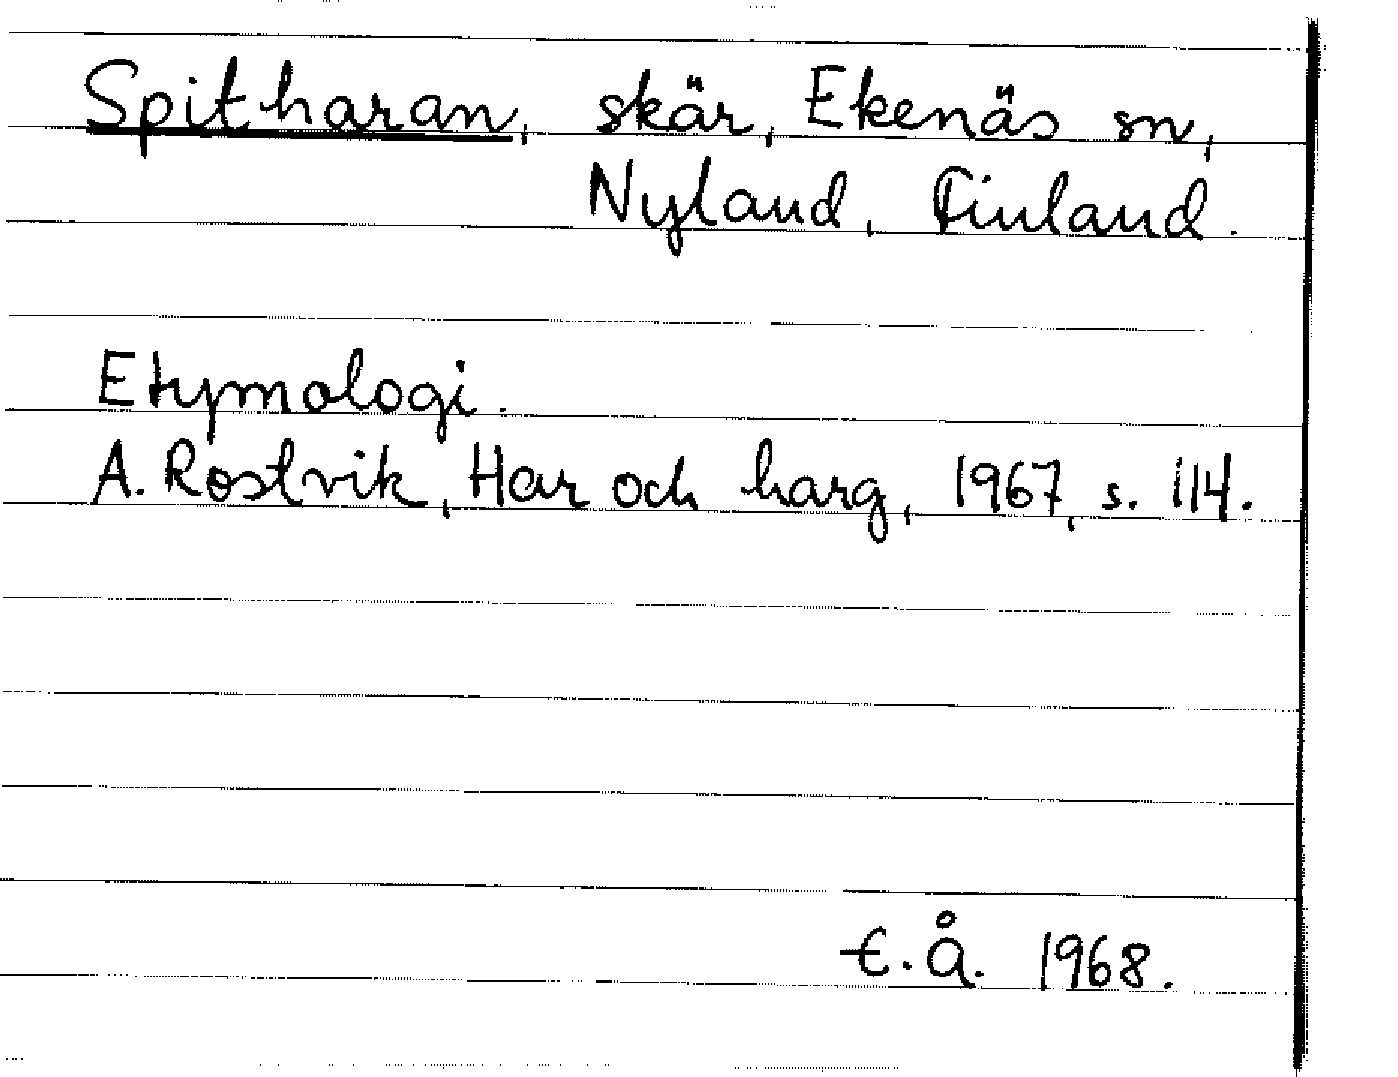 Spitharan, skär, Ekenäs sn,
Nyland, Finland.
Etymologi.
A. Rostvik, Har och harg, 1967, s. 114.
E.Å. 1968.